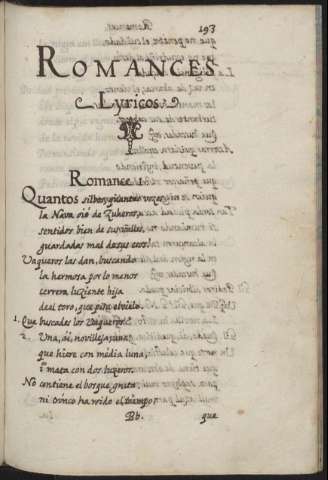 193
ROMANCES
Lyricos
Romance 1
Quantos silbos, quantas vozes
la Nava oió de Zuheros,
sentidos bien de sus valles,
guardadas mal de sus ecos!
Vaqueros las dan, buscando
la hermosa por lo menos
cerrera luziente hija
de el toro, que pisa el cielo.
1. Que buscades los Vaqueros?
2. Una, ai, novilleja, una,
que hiere con media luna,
i mata con dos luzeros.
No contiene el bosque gruta,
ni tronco ha roido el tiempo,
Bb. que